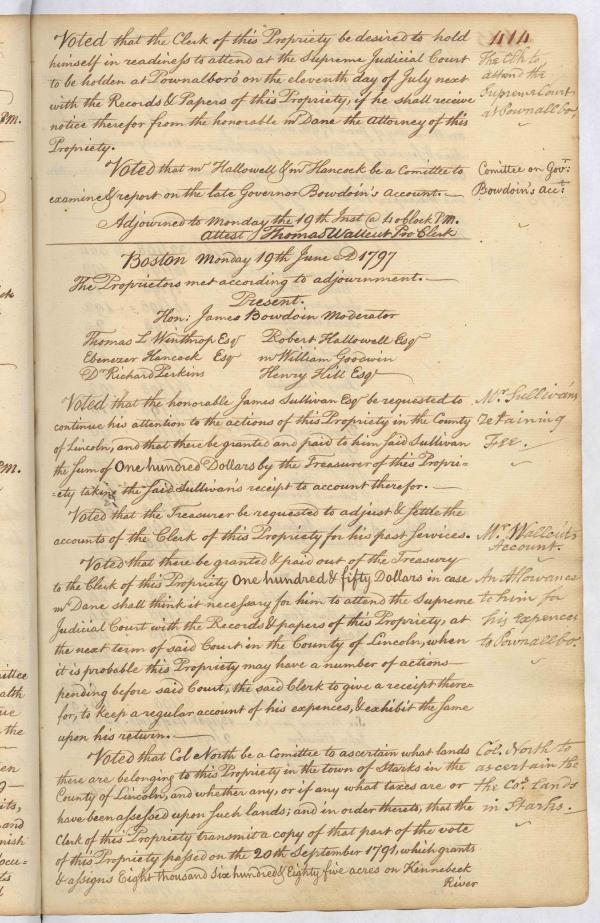 414
Voted that the Clerk of this Propriety be desired to hold
himself in readiness to attend at the Supreme Judicial Court
to be holden at Pownalboro on the eleventh day of July next
with the Records & Papers of this Propriety, if he shall receive
notice therefor from the honorable mr Dane the Attorney of this
Propriety.
The Clk to
attend the
Supreme Court
at Pownallbo.
Voted that mr Hallowell & mr Hancock be a Comittee to
examine & report on the late Governor Bowdoin's Account.
Comittee on Govr.
Bowdoin's acct.
Adjourned to Monday the 19th Inst @ 4 oClock P.M.
Attest Thomas Wallcut Pro Clerk
Boston Monday 19th June AD 1797
The Proprietors met according to adjournment.
Present.
Hon: James Bowdoin Moderator
Thomas L Winthrop Esqr Robert Hallowell Esqr
Ebenezer Hancock Esqr mr William Goodwin
Dr Richard Perkins Henry Hill Esqr
Voted that the honorable James Sullivan Esqr be requested to
continue his attention to the actions of this Propriety in the County
of Lincoln, and that there be granted and paid to him said Sullivan
the Sum of One hundred Dollars by the Treasurer of this Propri-
=ety taking the said Sullivan's receipt to account therefor.
Mr. Sullivans
retaining
Fee.
Voted that the Treasurer be requested to adjust & settle the
accounts of the Clerk of this Propriety for his past services.
Mr. Wallcut's
Account.
Voted that there be granted & paid out of the Treasury
to the Clerk of this Propriety One hundred & fifty Dollars in case
mr Dane shall think it necessary for him to attend the Supreme
Judicial Court with the Records & papers of this Propriety, at
the next term of said Court in the County of Lincoln, when
it is probable this Propriety may have a number of actions
pending before said Court, the said Clerk to give a receipt there-
for, to keep a regular account of his expences, & exhibit the same
upon his return.
An Allowance
to him for
his expences
to Pownallbo.
Voted that Col North be a Comittee to ascertain what lands
there are belonging to this Propriety in the town of Starks in the
County of Lincoln, and whether any, or if any what taxes are or
have been assessed upon such lands; and in order thereto, that the
Clerk of this Propriety transmit a copy of that part of the vote
of this Propriety passed on the 20th September 1791, which grants
& assigns Eight thousand six hundred & Eighty five acres on Kennebeck
River
Col. North to
ascertain the
the Co.s lands
in Starks.